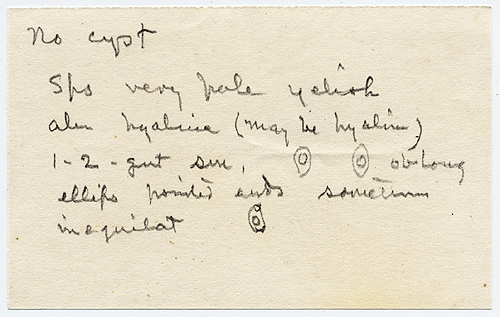 No cyst
Sps very pale yelish
alm hyaline (may be hyalin)
1-2-gut sm, oblong
ellips pointed ends sometimes
inequilat